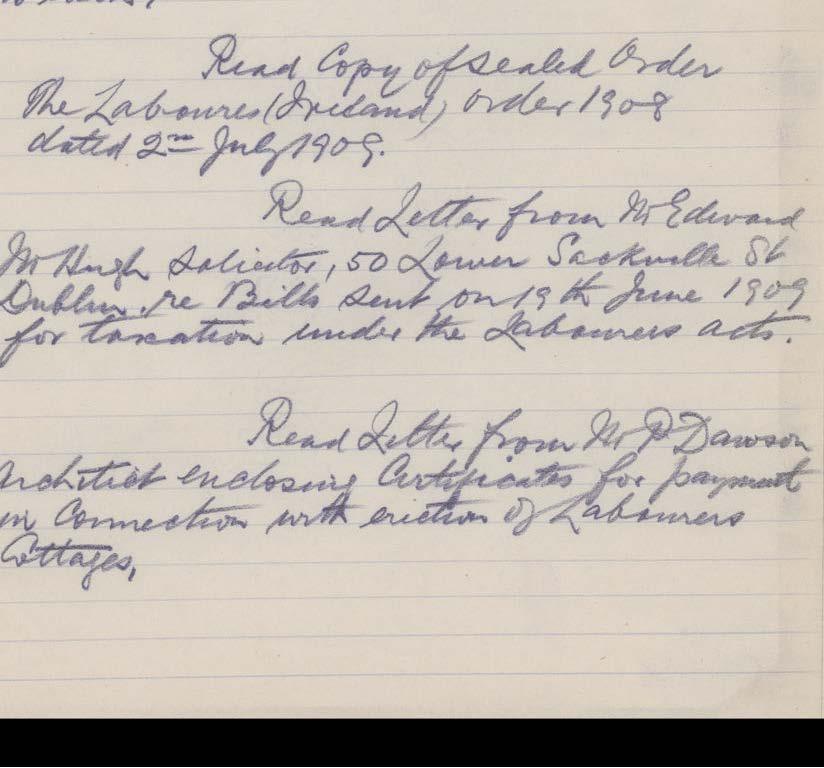 Read Copy of sealed Order
The Laboures (Ireland) order 1908
dated 2nd July 1909.
Read Letter from Mr Edward
McHugh Solicitor, 50 Lower Sackville St
Dublin re Bills sent on 19th June 1909
for taxation under the Labourers acts.
Read Letter from Mr P Dawson
Architect enclosing Certificates for payment
in Connection with erection of Labourers
Cottages,